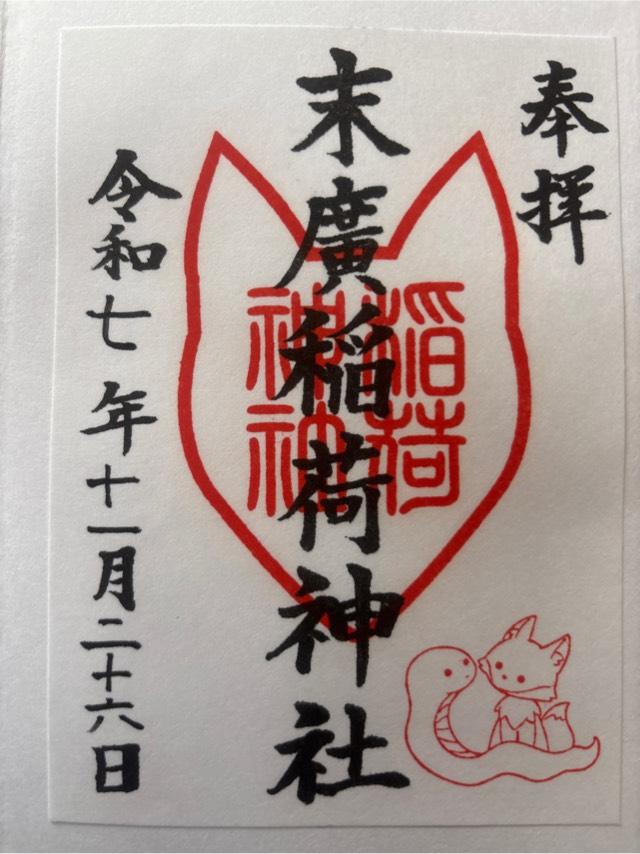 奉拝
末廣稲荷神社
稲荷
令和七年十一月二十六日